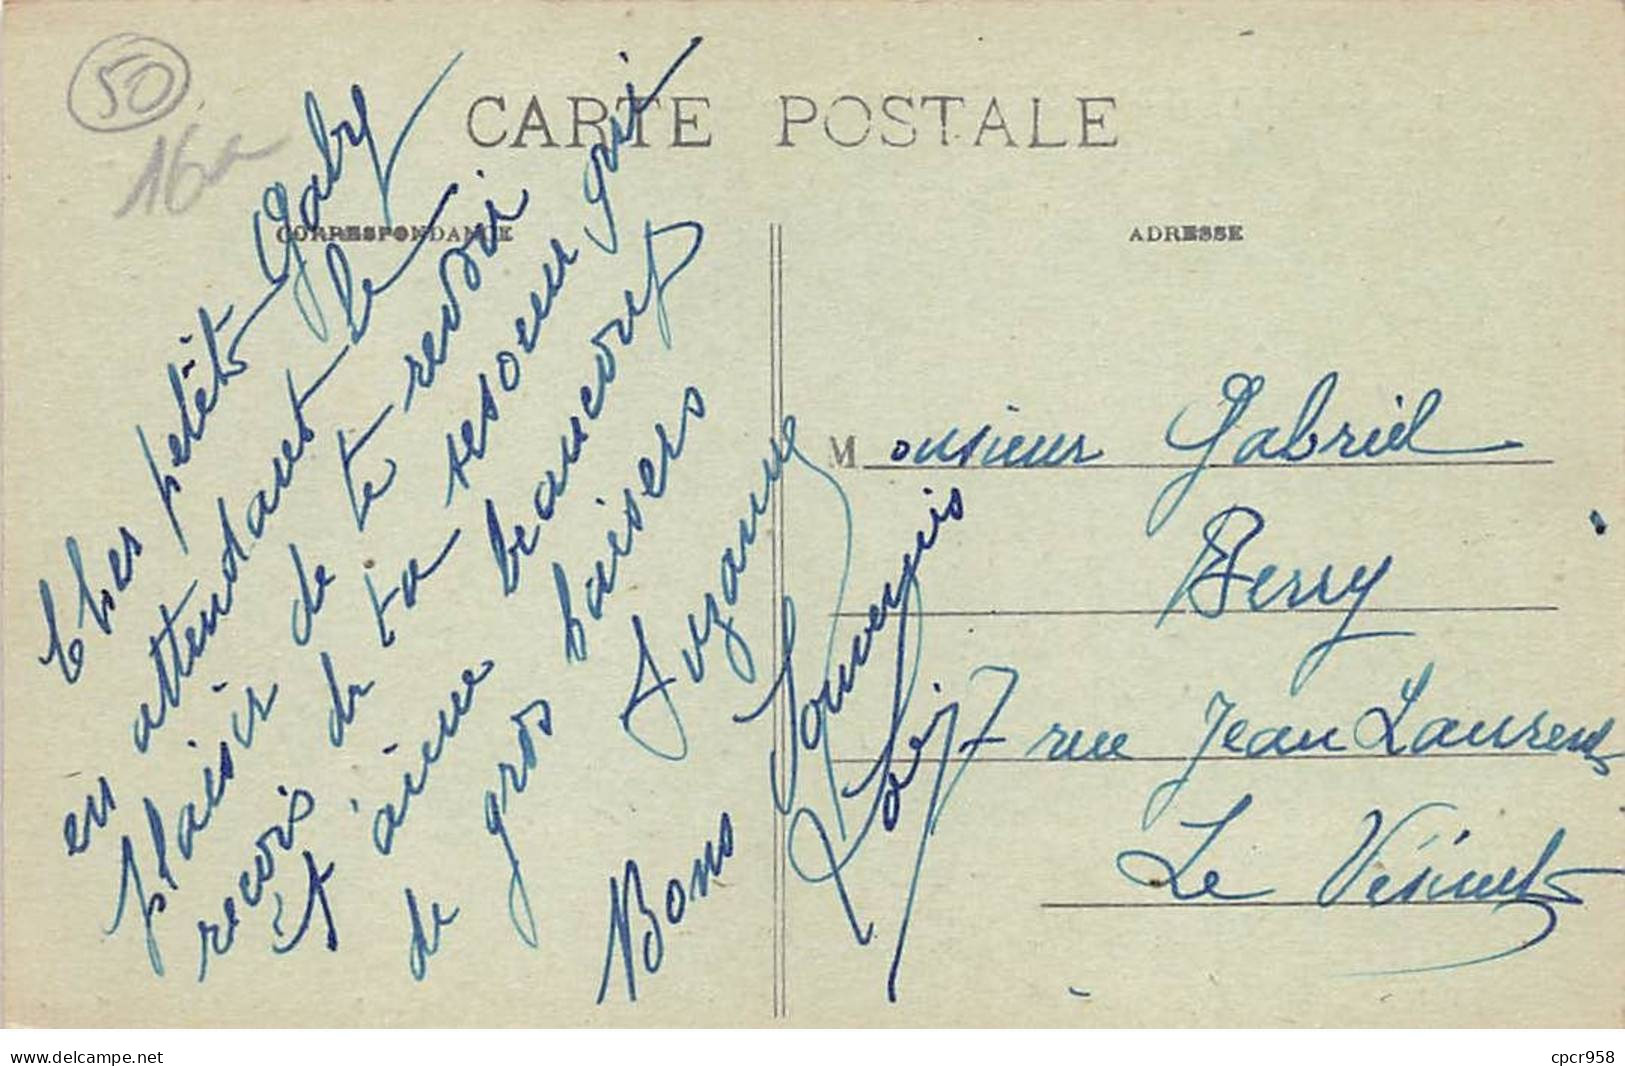 50
16a
CARTE POSTALE
CORRESPONDANCE
ADRESSE
Cher petit Gaby
en attendant le
plaisir de te revoir
recois de ta
et t'aime beaucoup
de gros baisers
Suzanne
Bons Souvenirs
Monsieur Gabriel
Berry
7 rue Jean Laurent
Le Vésinet
www.delcampe.net
cpcr958